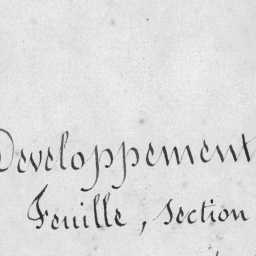 Developpement
Feuille, Section